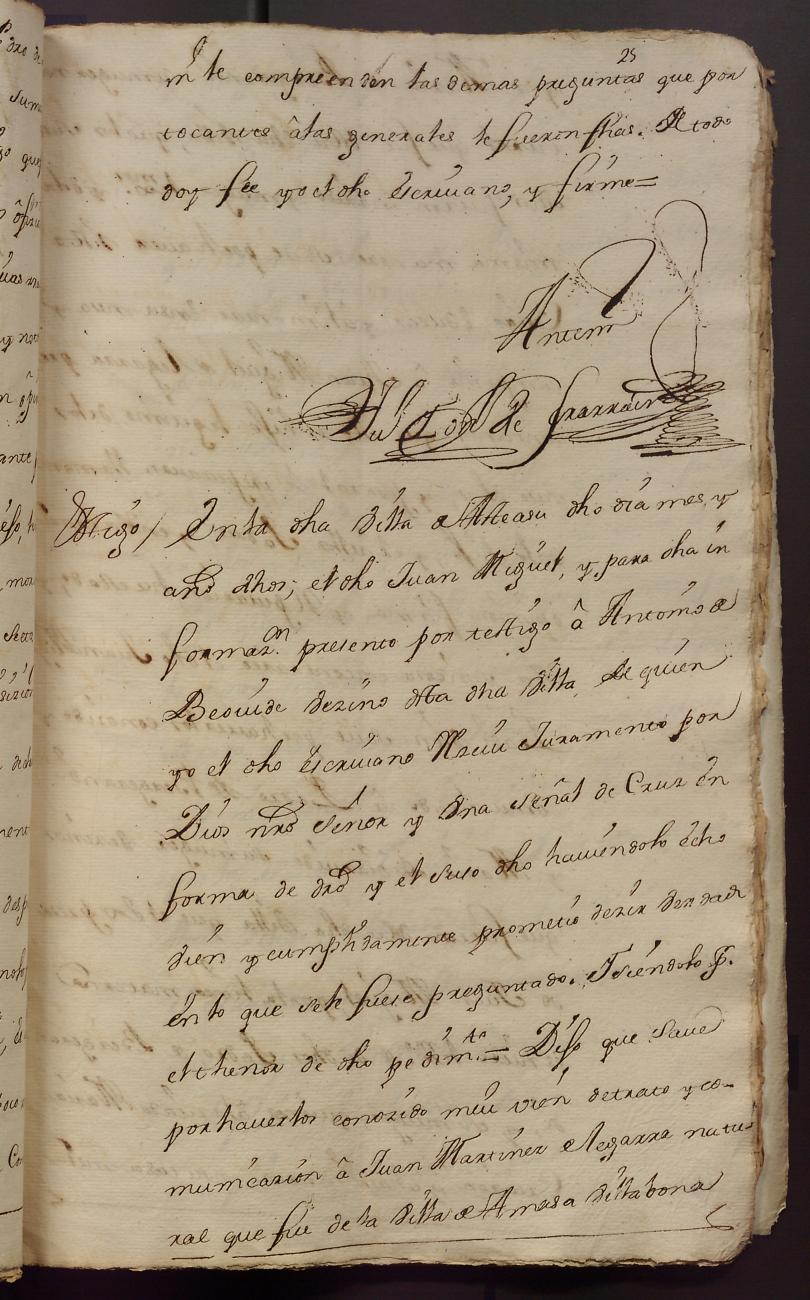 25
ni le comprenden las demas preguntas que por
tocantes â las generales le fueron fhas. De todo
doy fee yo el dho escriuano, y firme=
Antemi
de Larrain
Testigo / En la dha Villa de Asteasu dho dia mes, y
año dhos; el dho Juan Miguel, y para dha in
formazon presento por testigo â Antonio de
Beouide vezino desta dha Villa, de quien
yo el dho escriuano Rreciui Juramento por
Dios nrô Señor y Vna señal de Cruz en
forma de drô y el suso dho hauiendolo êcho
vien y cumplidamente prometio dezir verdad
en lo que se le fuese preguntado. Y siendolo p.r
el thenor de dho pedimto= Dijo que saue
por hauerlos conozido mui vien de trato y co-
municazion â Juan Martinez de Legarra natu-
ral que fue de la Villa de Amasa Villabona